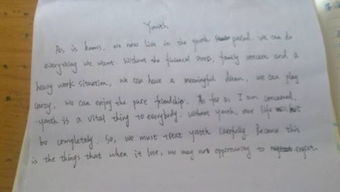 Youth
As is known, we now live in the youth period. we can do
everything we want. Without the financial needs, family concern and a
heavy work situation, we can have a meaningful dream, we can play
crazy, we can enjoy the pure friendship. As far as I am concerned,
youth is a vital thing to everybody. without youth, our life
be completely. So, we must treat youth carefully. Because this
is the things that when it lose, we may no opportunity to regret.